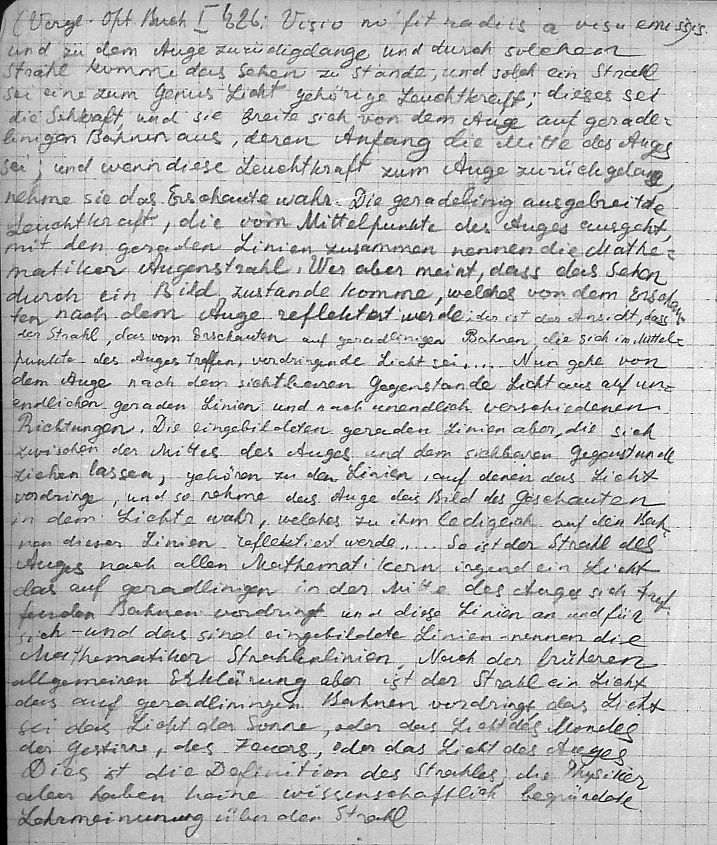 (Vergl. Opt. Buch I §26: Visio no' fit radiis a visu emissis.
und zu dem Auge zurückgelange und durch solchen
Strahl komme das Sehen zu Stande, und solch ein Strahl
sei eine zum Genus Licht gehörige Leuchtkraft; dieses sei
die Sehkraft, und sie breite sich von dem Auge auf gerade-
linigen Bahnen aus, deren Anfang die Mitte des Auges
sei; und wenn diese Leuchtkraft zum Auge zurückgelange,
nehme sie das Erschaute wahr. Die geradelinig ausgebreitete
Leuchtkraft, die vom Mittelpunkte des Auges ausgeht,
mit den geraden Linien zusammen nennen die Mathe=
matiker Augenstrahl. Wer aber meint, dass das Sehen
durch ein Bild zustande komme, welches von dem Erschau-
ten nach dem Auge reflektiert werde, der ist der Ansicht, dass
der Strahl, das vom Erschauten auf geradlinigen Bahnen, die sich im Mittel-
punkte des Auges treffen, vordringende Licht sei.... Nun gehe von
dem Auge nach dem sichtbaren Gegenstande Licht aus auf un=
endlichen geraden Linien und nach unendlich verschiedenen
Richtungen. Die eingebildeten geraden Linien aber, die sich
zwischen der Mitte des Auges und dem sichbaren Gegenstande
ziehen lassen, gehören zu den Linien, auf denen das Licht
vordringe, und so nehme das Auge das Bild des Geschauten
in dem Lichte wahr, welches zu ihm lediglich auf den Bah-
nen dieser Linien reflektiert werde.... So ist der Strahl des
Auges nach allen Mathematikern irgend ein Licht
das auf geradlinigen in der Mitte des Auges sich tref-
fenden Bahnen vordringt und diese Linien an und für
sich - und das sind eingebildete Linien - nennen die
Mathematiker Strahlenlinien. Nach der früheren
allgemeinen Erklärung aber ist der Strahl ein Licht
das auf geradlinigen Bahnen vordringt, das Licht
sei das Licht der Sonne, oder das Licht des Mondes
der Gestirne, des Feuers, oder das Licht des Auges
Dies ist die Definition des Strahles; die Physiker
aber haben keine wissenschaftlich begründete
Lehrmeinung über den Strahl